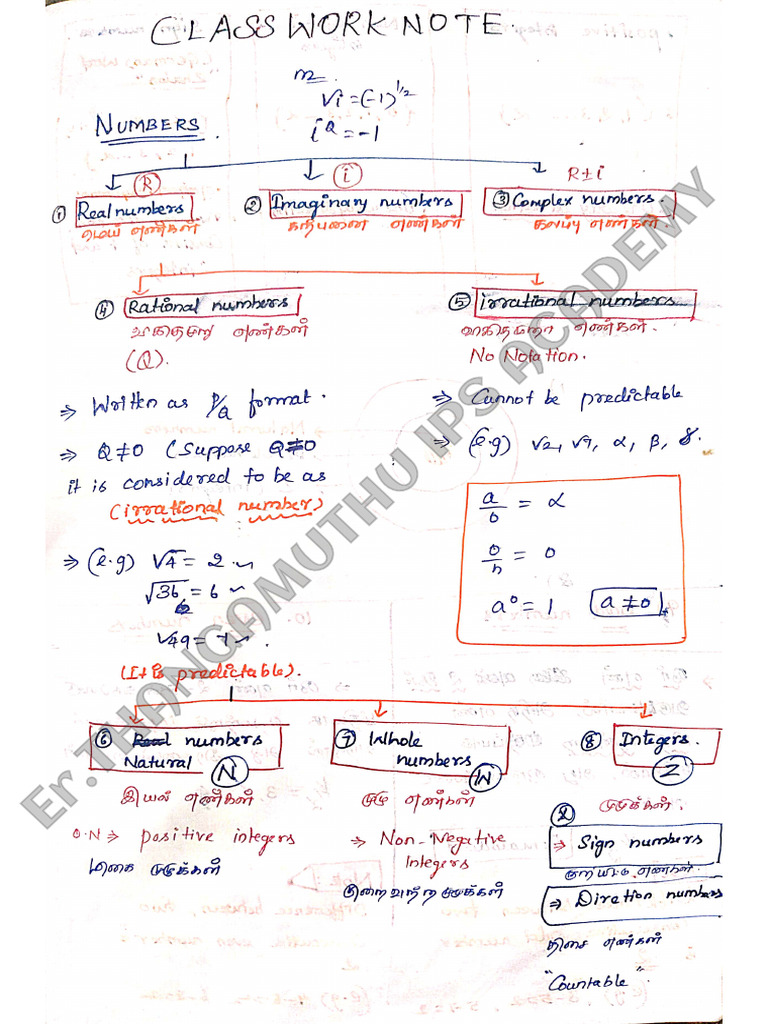 CLASS WORK NOTE.
√i = (-1)^1/2
i² = -1
NUMBERS
(R) (i) R±i
① Real numbers ② Imaginary numbers ③ Complex numbers.
மெய் எண்கள் கற்பனை எண்கள் கலப்பு எண்கள்
④ Rational numbers ⑤ irrational numbers
விகிதமுறு எண்கள் விகிதமுறா எண்கள்.
(Q). No Notation.
⇒ Written as P/Q format. ⇒ Cannot be predictable
⇒ Q≠0 (Suppose Q≠0 ⇒ (e.g) √2, √7, α, β, 8.
it is considered to be as
(irrational number)
a/0 = α
⇒ (e.g) √4 = 2
0/n = 0
√36 = 6
a⁰ = 1 a ≠ 0
√49 = 7
(It is predictable).
⑥ numbers ⑦ Whole ⑧ Integers.
Natural numbers
(N) (W) (Z)
இயல் எண்கள் முழு எண்கள் முழுக்கள்.
O.N ⇒ positive integers ⇒ Non-Negative ⇒ Sign numbers
மிகை முழுக்கள் Integers குறியீட்டு எண்கள்.
குறைவற்ற முழுக்கள் ⇒ Diretion numbers
திசை எண்கள்
"Countable"
Er.THANGAMUTHU IPS ACADEMY